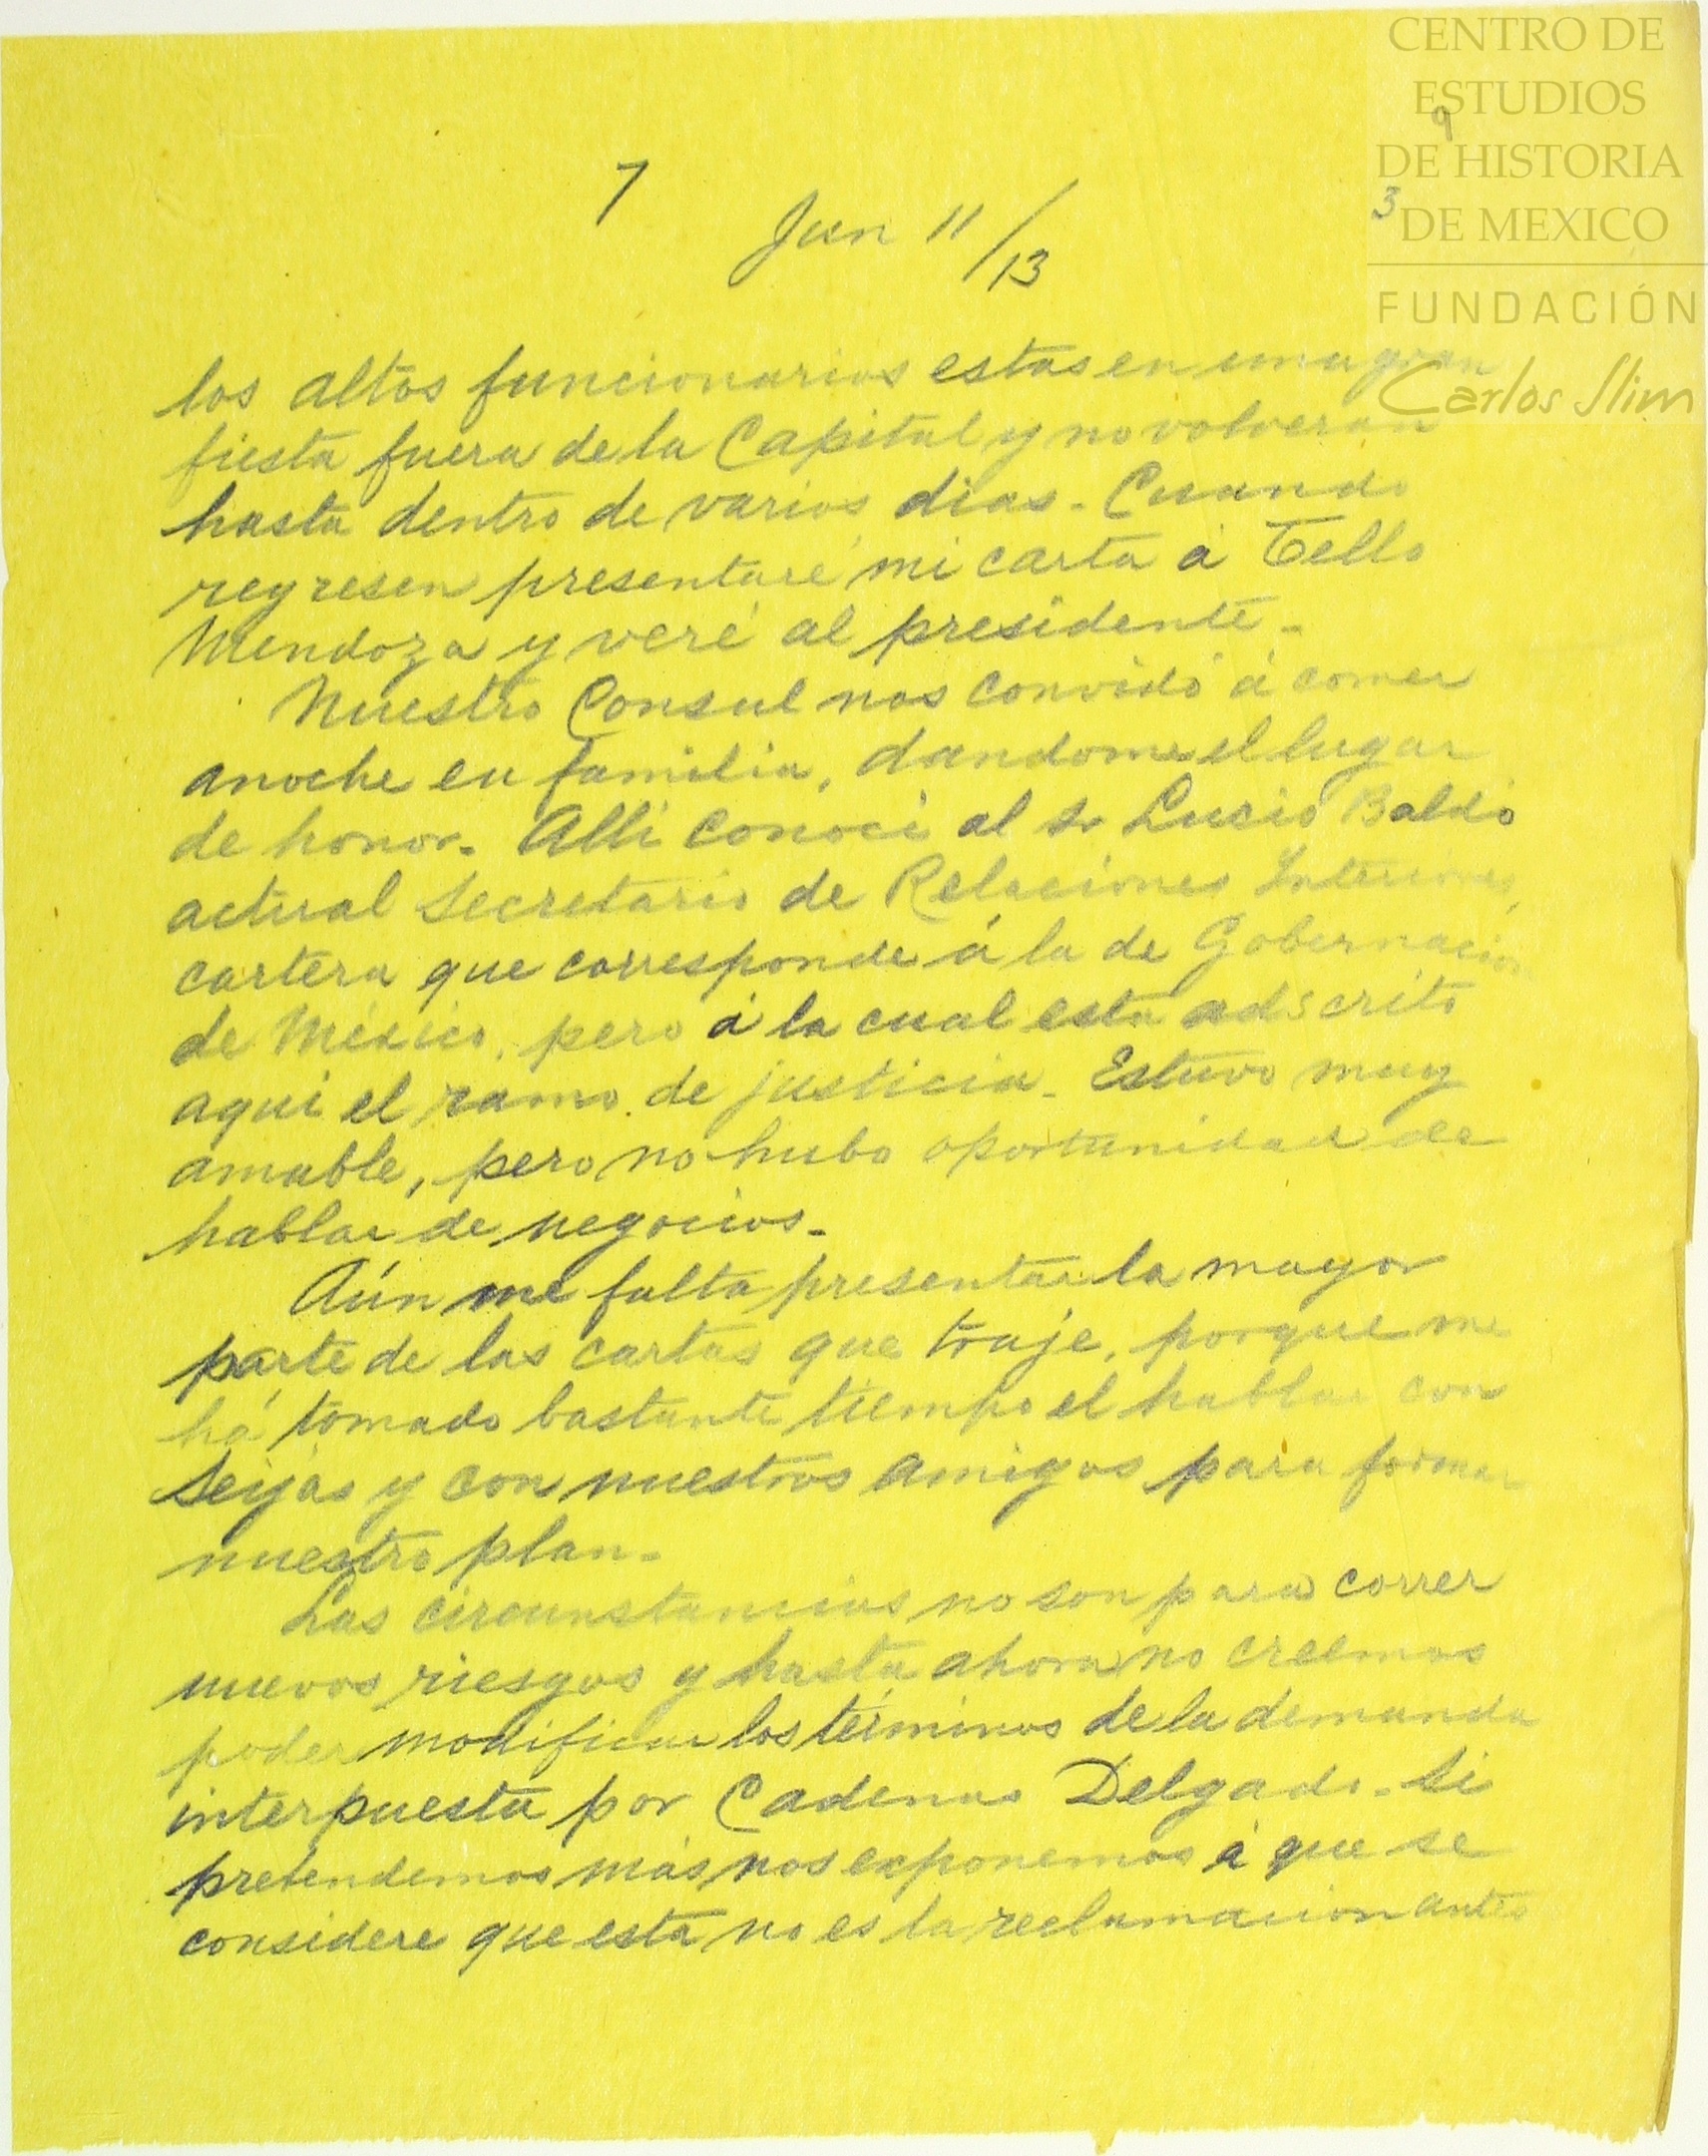 CENTRO DE
ESTUDIOS
9
DE HISTORIA
3
DE MEXICO
FUNDACIÓN
Carlos Slim
7
Jun 11/13
los altos funcionarios estas en una gran
fiesta fuera de la Capital y no volveran
hasta dentro de varios dias. Cuando
regresen presentaré mi carta á Tello
Mendoza y veré al presidente.
Nuestro Consul nos convidó á comer
anoche en familia, dandome el lugar
de honor. Alli conoci al Sr Lucio Baldó
actual Secretario de Relaciones Interiores,
cartera que corresponde á la de Gobernacion
de México, pero á la cual esta adscrito
aqui el ramo de justicia. Estuvo muy
amable, pero no hubo oportunidad de
hablar de negocios.
Aún me falta presentar la mayor
parte de las cartas que traje, porque me
há tomado bastante tiempo el hablar con
Seijas y con nuestros amigos para formar
nuestro plan.
Las circunstancias no son para correr
nuevos riesgos y hasta ahora no creemos
poder modificar los términos de la demanda
interpuesta por Cadenas Delgado. Si
pretendemos más nos exponemos á que se
considere que esta no es la reclamacion antes